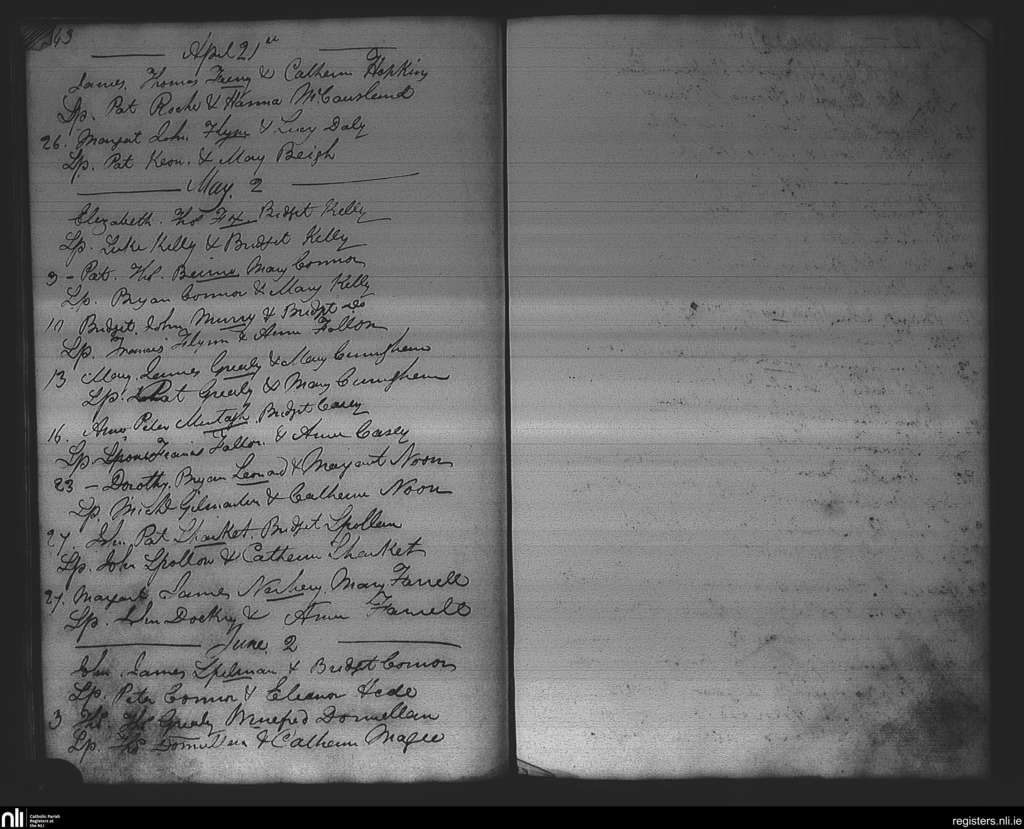 163
April 21st
James. Thomas Taeny & Catherin Hopkins
Sp. Pat Roche & Hanna McCausland
26. Margaret John Flynn & Lucy Daly
Sp. Pat Keon. & Mary Beigh
May. 2
Elizabeth. Thos Fox. Bridget Kelly
Sp. Luke Kelly & Bridget Kelly
3 - Pat. Thos. Beirne Mary Connor
Sp. Bryan Connor & Mary Kelly
Bridget. John Murry & Bridget Do
Sp. Francis Flynn & Anne Fallon
13 Mary. James Grealy & Mary Cunighem
Sp. Pat Grealy & Mary Cunighem
16. Anne Peter Murtagh. Bridget Casey
Sp. Francis Fallon. & Anne Casey
23 - Dorothy. Bryan Leonard & Margaret Noon
Sp. Michl Gilmartin & Catherin Noon
27. John. Pat Sharket. Bridget Spollem
Sp. John Spollon & Catherin Sharket
27. Margaret. James Nerhery Mary Farrell
Sp. Wm Dockry & Anne Farrell
June 2
John. James Spelman & Bridget Connor
Sp. Peter Connor & Eleanor Hede
3 Thos. Thos Grealy Winefred Donnellan
Sp. Thos Donnellan & Catherin Magee
nli
Catholic Parish
Registers at
the NLI
registers.nli.ie